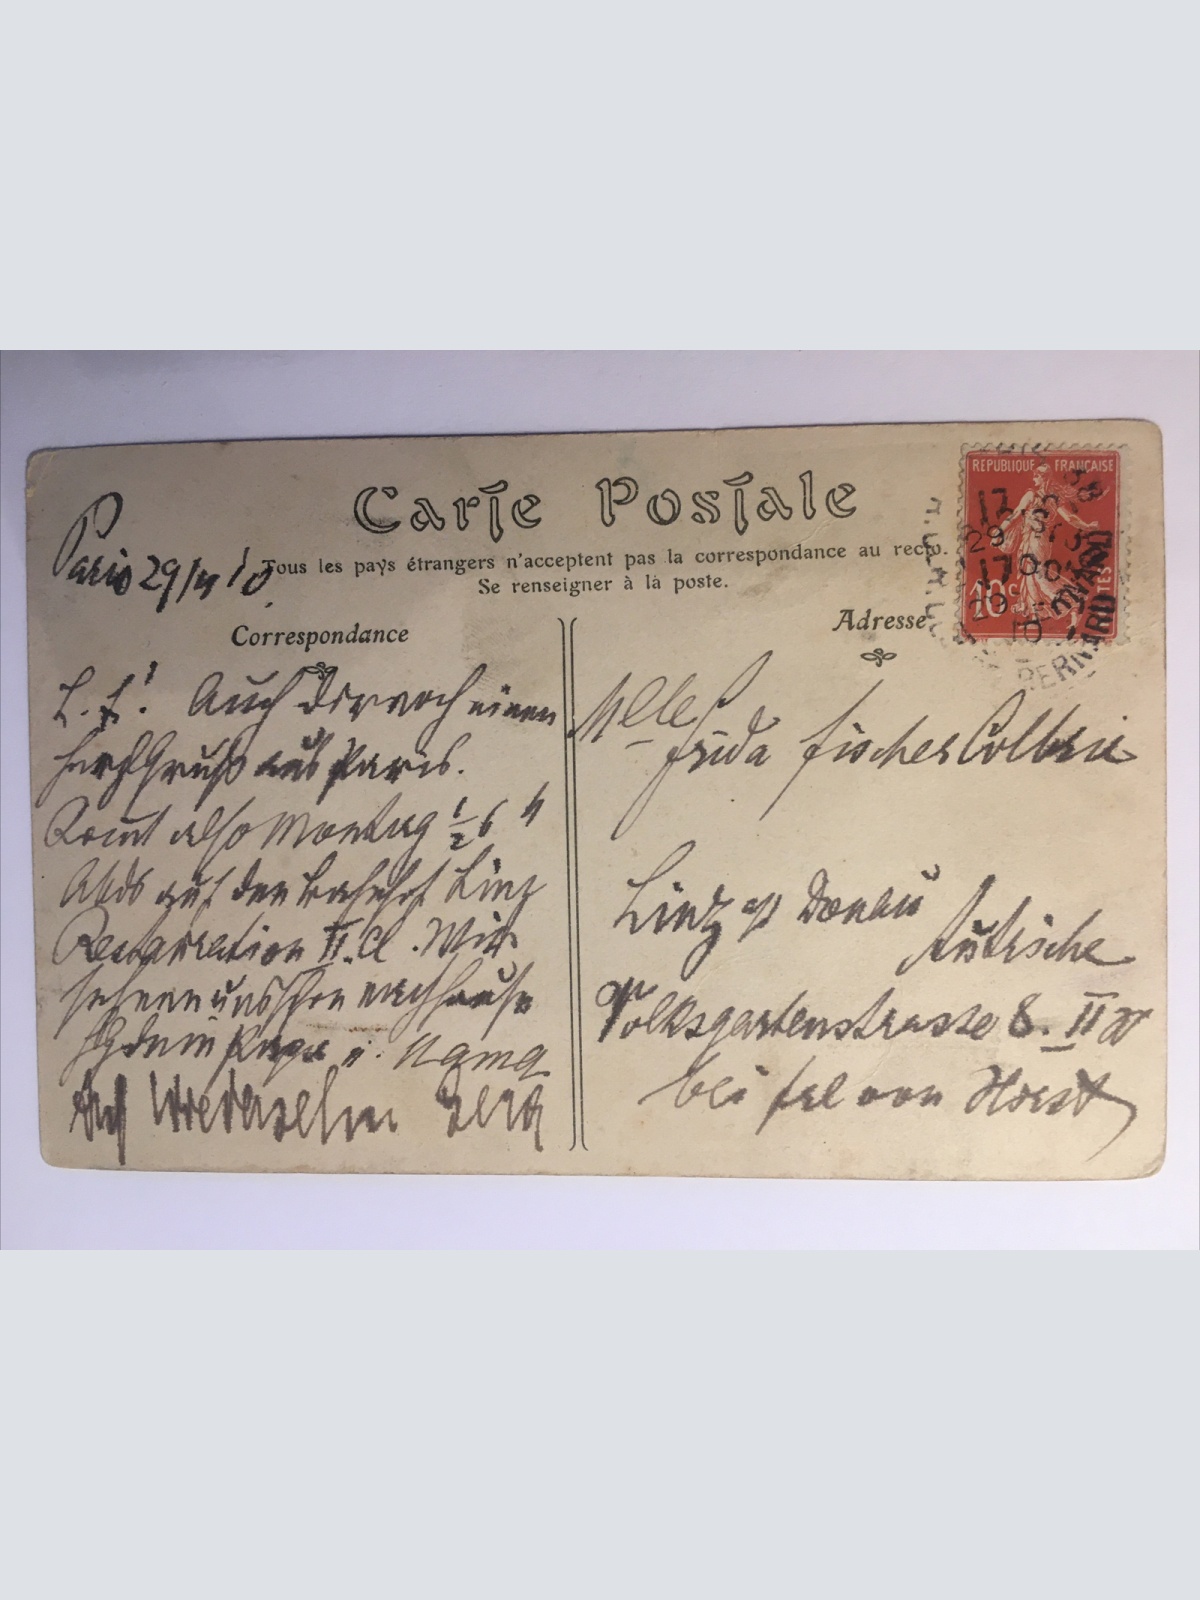 Carte Postale
Tous les pays étrangers n'acceptent pas la correspondance au recto.
Se renseigner à la poste.
Paris 29/
Correspondance
L. F.! Auch Dir noch einen
herzl Gruß aus Paris.
Komt also Montag ½6 h
Abds auf den Bahnhof Linz
Restauration II. Cl. Wir
sehnen uns schon nachhause
Papa u. Mama
Auf Wiedersehn
Adresse
REPUBLIQUE FRANÇAISE
10c
POSTES
Mlle
Frida Fischer Colbrie
Linz a/ Donau
Autriche
Volksgartenstrasse 8. II
bei Frl von Horst